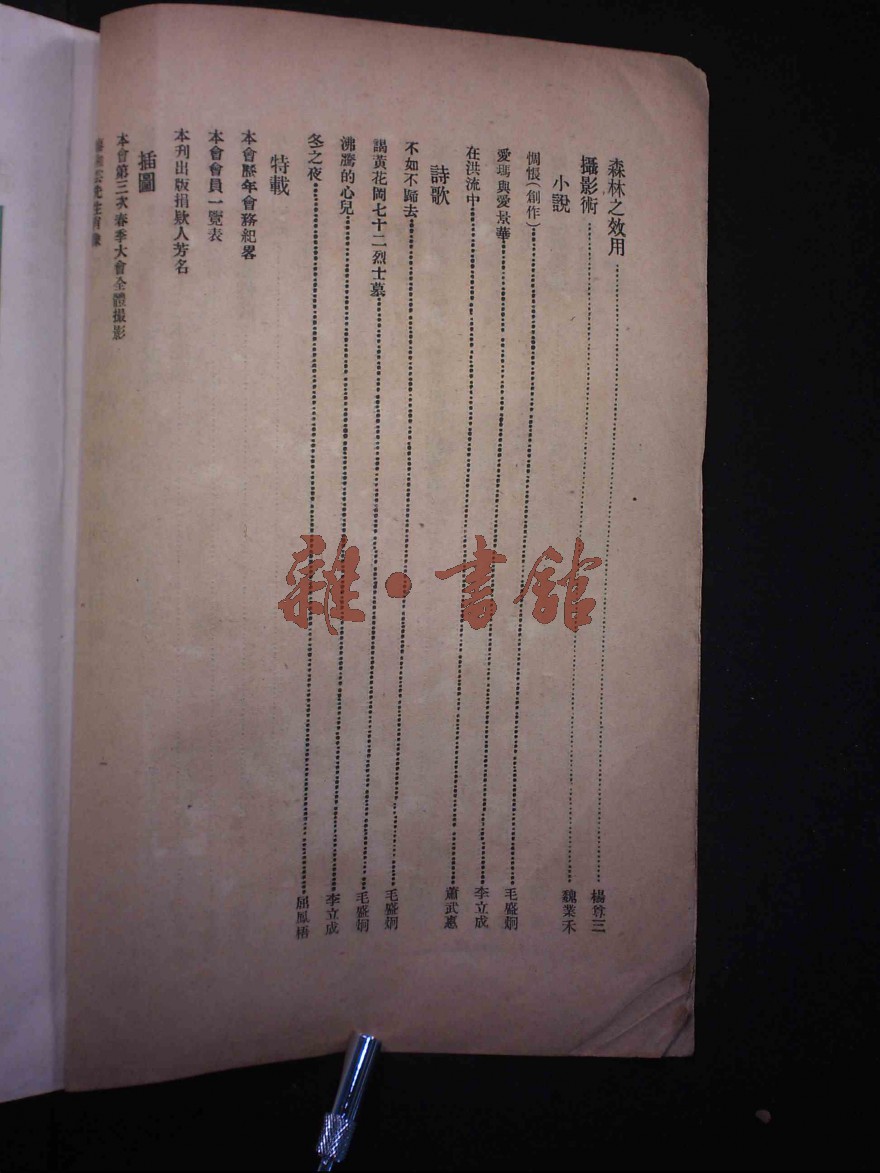 森林之效用……楊尊三
攝影術……魏業禾
小說
惆悵(創作)……毛盛炯
愛瑪與愛景華……李立成
在洪流中……蕭武惠
詩歌
不如不歸去……毛盛炯
謁黃花岡七十二烈士墓……毛盛炯
沸騰的心兒……李立成
冬之夜……屈鳳梧
特載
本會歷年會務紀畧
本會會員一覽表
本刊出版捐欵人芳名
插圖
本會第三次春季大會全體撮影
先生肖像
雜·書館